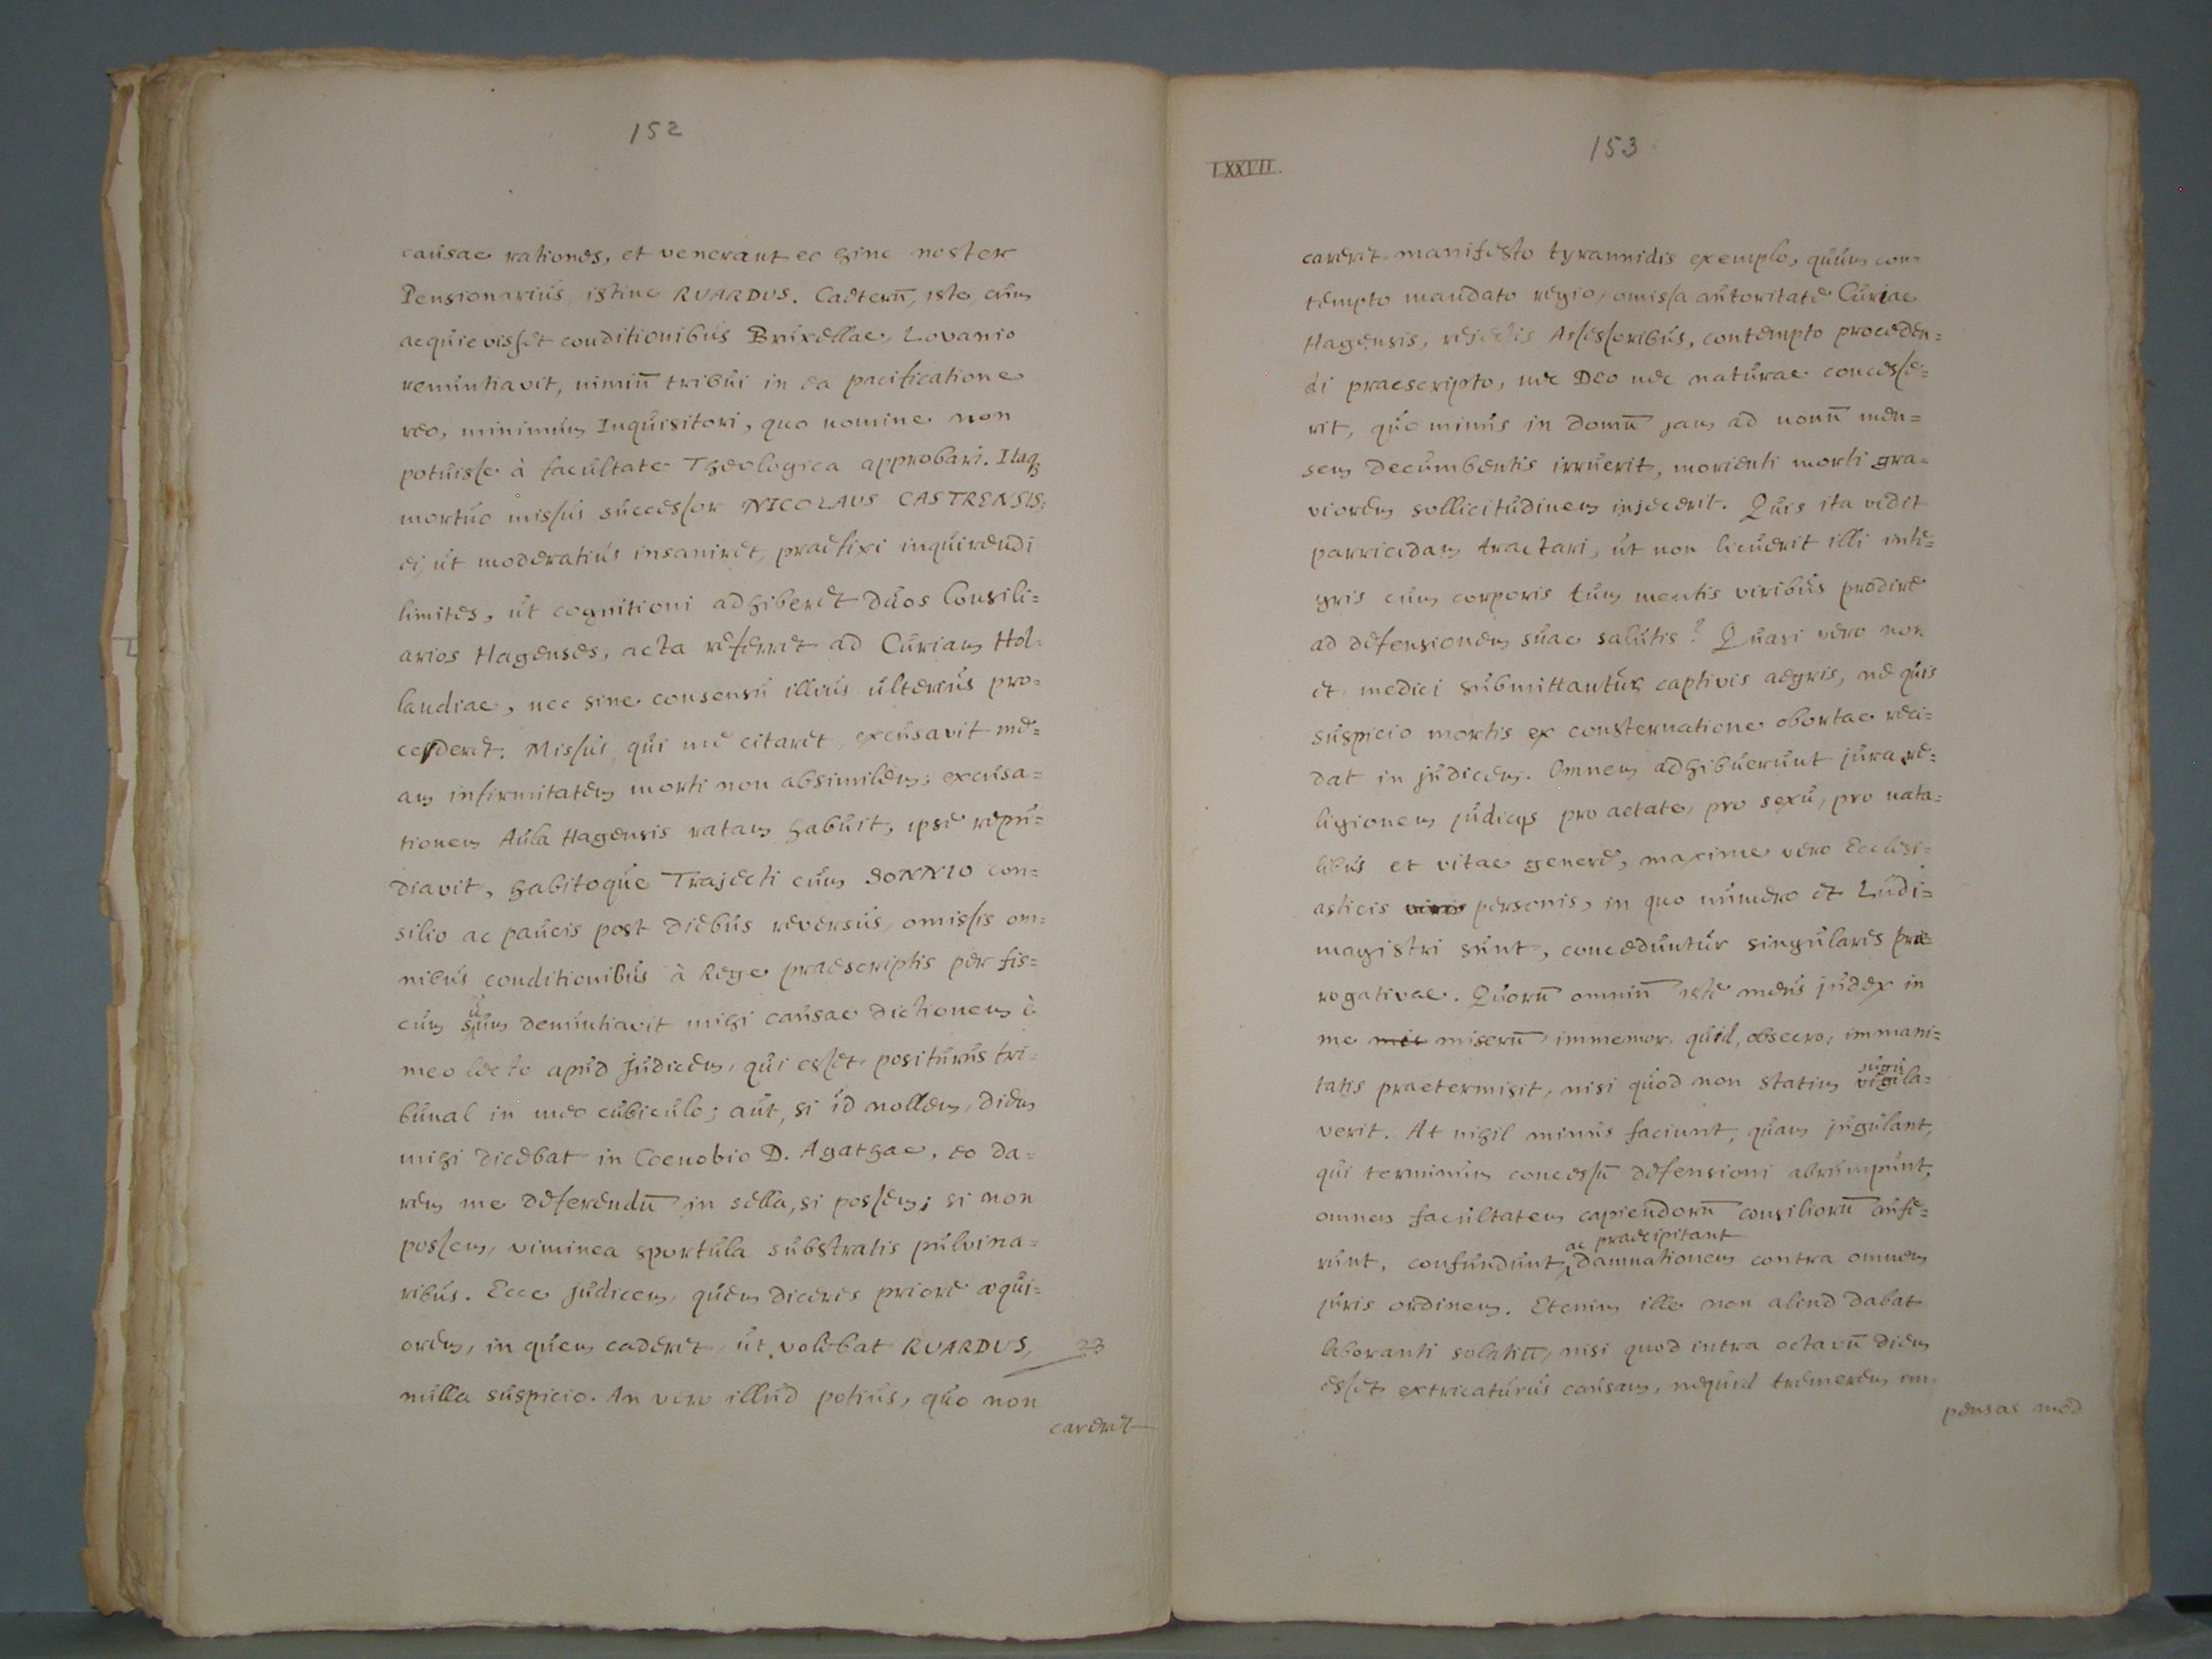 152
causae rationes, et venerant eo hinc noster
Pensionarius, istinc RUARDUS. Caeterū, iste cum
acquievisset conditionibus Bruxellae, Lovanio
renuntiavit, nimiū tribui in ea pacificatione
reo, minimum Inquisitori, quo nomine non
potuisse à facultate Theologica approbari. Itaq3
mortuo missus successor NICOLAUS CASTRENSIS;
ei, ut moderatius insaniret, praefixi inquirendi
limites, ut cognitioni adhiberet duos Consili=
arios Hagenses, acta referret ad Curiam Hol=
landiae, nec sine consensu illius ulterius pro=
cederet. Missus, qui me citaret, excusavit me=
am infirmitatem morti non absimilem; excusa=
tionem Aula Hagensis ratam habuit, ipse repu=
diavit, habitoque Trajecti cum SONNIO con=
silio ac paucis post diebus reversus, omissis om=
nibus conditionibus à Rege praescriptis per fis=
cum suum denuntiavit mihi causae dictionem è
meo lecto apud judicem, qui esset positurus tri=
bunal in meo cubiculo; aut, si id nollem, diem
mihi dicebat in Coenobio D. Agathae, eo da=
rem me deferendū in sella, si possem; si non
possem, viminea sportula substratis pulvina=
ribus. Ecce judicem, quem diceris priore aequi=
orem, in quem caderet, ut volebat RUARDUS, 23
nulla suspicio. An vero illud potius, quo non
careret
LXXVII.
153
careret manifesto tyrannidis exemplo, quum con=
tempto mandato regio, omissa autoritate Curiae
Hagensis, rejectis Assessoribus, contempto proceden=
di praescripto, nec Deo nec naturae concesse=
rit, quo minus in domū jam ad nonū men=
sem decumbentis irruerit, morienti morti gra=
viorem sollicitudinem injecerit. Quis ita vidit
parricidam tractari, ut non licuerit illi inte=
gris cum corporis tum mentis viribus prodire
ad defensionem suae salutis? Quasi vero non
et medici submittantur captivis aegris, ne quis
suspicio mortis ex consternatione obortae reci=
dat in judicem. Omnem adhibuerunt jura re=
ligionem judicijs pro aetate, pro sexu, pro nata=
libus et vitae genere, maxime vero Ecclesi=
asticis viris personis, in quo numero et Ludi=
magistri sunt, conceduntur singulares prae=
rogativae. Quorū omniū iste meus judex in
me mis miserū immemor, quid, obsecro, immani=
tatis praetermisit, nisi quod non statim vigila=
jugu
verit. At nihil minus faciunt, quam jugulant,
qui terminum concessū defensioni abrumpunt,
omnem facultatem capiendorū consiliorū aufe=
ac praecipitant
runt, confundunt damnationem contra omnem
juris ordinem. Etenim ille non aliud dabat
laboranti solatiū, nisi quod intra octavū diem
esset extricaturus causam, nequid tremerem im=
pensas med